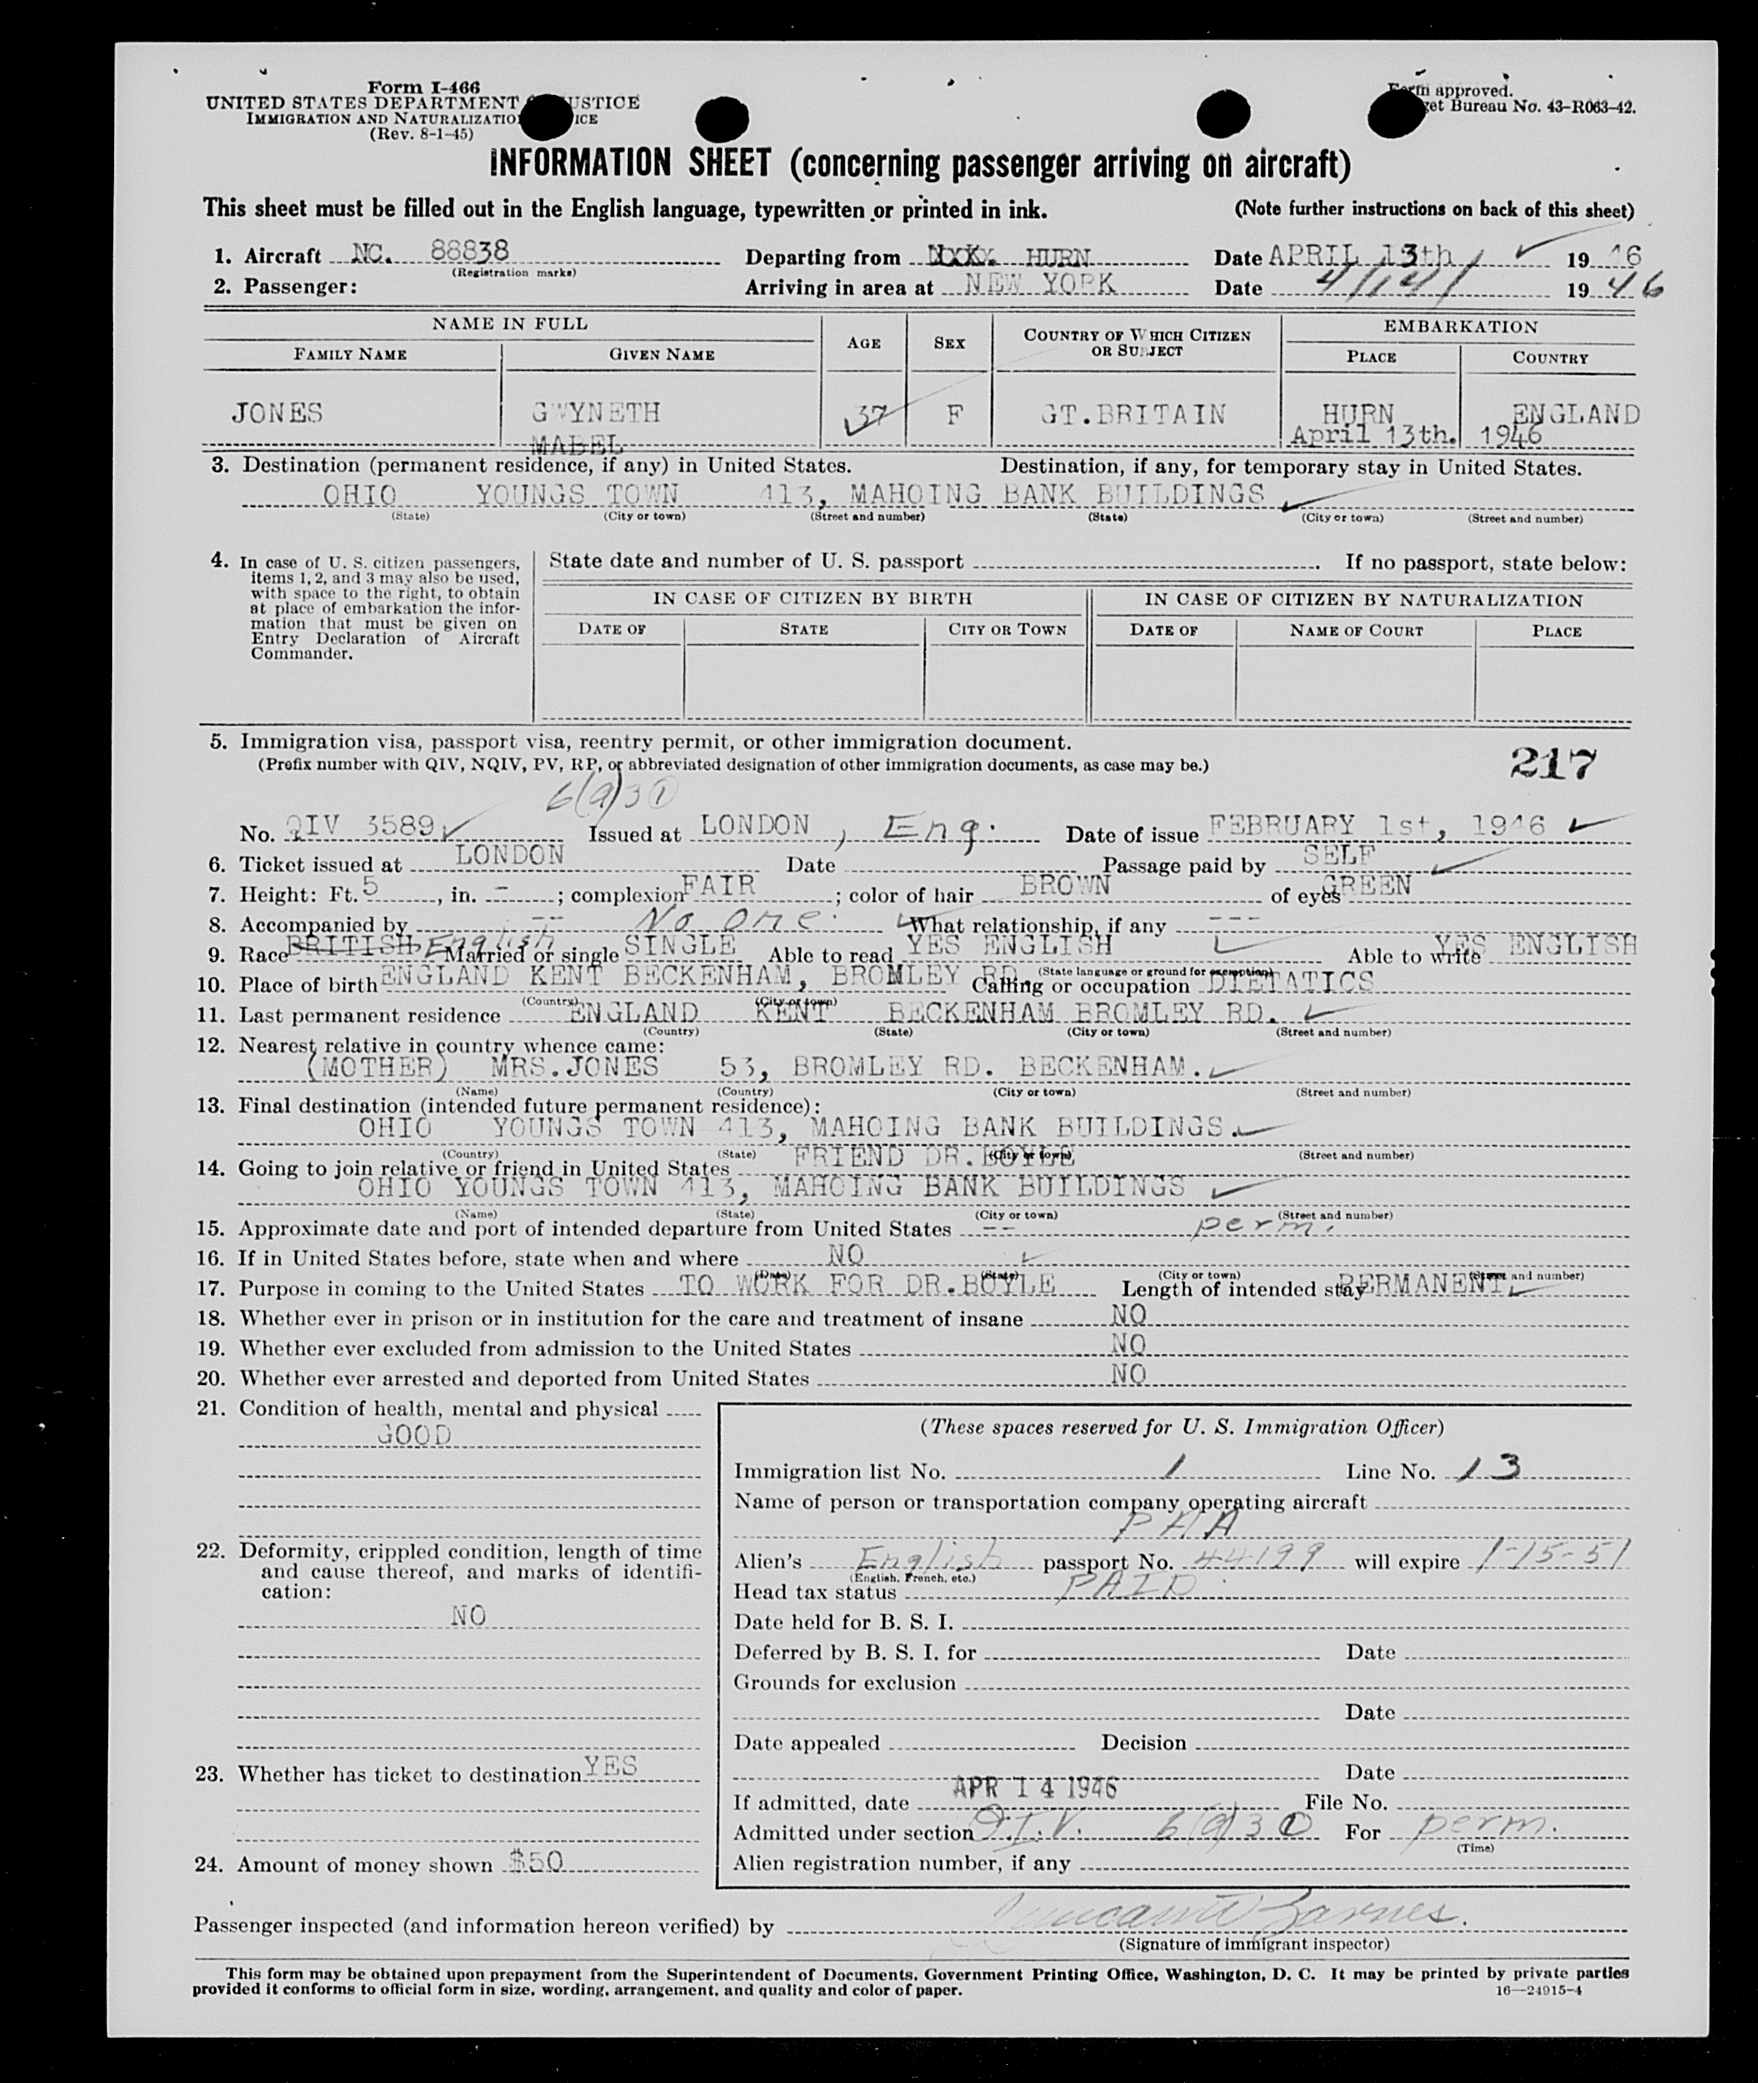 Form I-466
UNITED STATES DEPARTMENT USTICE
IMMIGRATION AND NATURALIZATIO ICE
(Rev. 8-1-45)
Form approved.
get Bureau No. 43-R063-42.
INFORMATION SHEET (concerning passenger arriving on aircraft)
This sheet must be filled out in the English language, typewritten or printed in ink. (Note further instructions on back of this sheet)
1. Aircraft NC. 88838 Departing from HURN Date APRIL 13th 19 46
(Registration marks)
2. Passenger: Arriving in area at NEW YORK Date 4/14/ 19 46
NAME IN FULL AGE SEX COUNTRY OF WHICH CITIZEN OR SUBJECT EMBARKATION
FAMILY NAME GIVEN NAME PLACE COUNTRY
JONES GWYNETH 37 F GT.BRITAIN HURN ENGLAND
MABEL April 13th. 1946
3. Destination (permanent residence, if any) in United States. Destination, if any, for temporary stay in United States.
OHIO YOUNGS TOWN 413, MAHOING BANK BUILDINGS
(State) (City or town) (Street and number) (State) (City or town) (Street and number)
4. In case of U. S. citizen passengers,
items 1, 2, and 3 may also be used,
with space to the right, to obtain
at place of embarkation the infor-
mation that must be given on
Entry Declaration of Aircraft
Commander.
State date and number of U. S. passport . If no passport, state below:
IN CASE OF CITIZEN BY BIRTH IN CASE OF CITIZEN BY NATURALIZATION
DATE OF STATE CITY OR TOWN DATE OF NAME OF COURT PLACE
5. Immigration visa, passport visa, reentry permit, or other immigration document.
(Prefix number with QIV, NQIV, PV, RP, or abbreviated designation of other immigration documents, as case may be.)
217
6(a)3①
No. QIV 3589 Issued at LONDON, Eng. Date of issue FEBRUARY 1st, 1946
6. Ticket issued at LONDON Date Passage paid by SELF
7. Height: Ft. 5, in. -; complexion FAIR; color of hair BROWN of eyes GREEN
8. Accompanied by -- No one. What relationship, if any ---
9. Race BRITISH English Married or single SINGLE Able to read YES ENGLISH Able to write YES ENGLISH
(State language or ground for exemption)
10. Place of birth ENGLAND KENT BECKENHAM, BROMLEY RD. Calling or occupation DIETATICS
(Country) (City or town)
11. Last permanent residence ENGLAND KENT BECKENHAM BROMLEY RD.
(Country) (State) (City or town) (Street and number)
12. Nearest relative in country whence came:
(MOTHER) MRS.JONES 53, BROMLEY RD. BECKENHAM.
(Name) (Country) (City or town) (Street and number)
13. Final destination (intended future permanent residence):
OHIO YOUNGS TOWN 413, MAHOING BANK BUILDINGS.
(Country) (State) (City or town) (Street and number)
14. Going to join relative or friend in United States FRIEND DR.BOYLE
OHIO YOUNGS TOWN 413, MAHOING BANK BUILDINGS
(Name) (State) (City or town) (Street and number)
15. Approximate date and port of intended departure from United States -- perm.
16. If in United States before, state when and where NO
(Date) (State) (City or town) (Street and number)
17. Purpose in coming to the United States TO WORK FOR DR.BOYLE Length of intended stay PERMANENT
18. Whether ever in prison or in institution for the care and treatment of insane NO
19. Whether ever excluded from admission to the United States NO
20. Whether ever arrested and deported from United States NO
21. Condition of health, mental and physical
GOOD
22. Deformity, crippled condition, length of time
and cause thereof, and marks of identifi-
cation:
NO
23. Whether has ticket to destination YES
24. Amount of money shown $50
(These spaces reserved for U. S. Immigration Officer)
Immigration list No. 1 Line No. 13
Name of person or transportation company operating aircraft
PAA
Alien's English passport No. 44199 will expire 1-15-51
(English, French, etc.)
Head tax status PAID
Date held for B. S. I.
Deferred by B. S. I. for Date
Grounds for exclusion
Date
Date appealed Decision
Date
If admitted, date APR 14 1946 File No.
Admitted under section Q.I.V. 6(a)3① For perm.
(Time)
Alien registration number, if any
Passenger inspected (and information hereon verified) by Barnes.
(Signature of immigrant inspector)
This form may be obtained upon prepayment from the Superintendent of Documents, Government Printing Office, Washington, D. C. It may be printed by private parties
provided it conforms to official form in size, wording, arrangement, and quality and color of paper.
16—24915-4